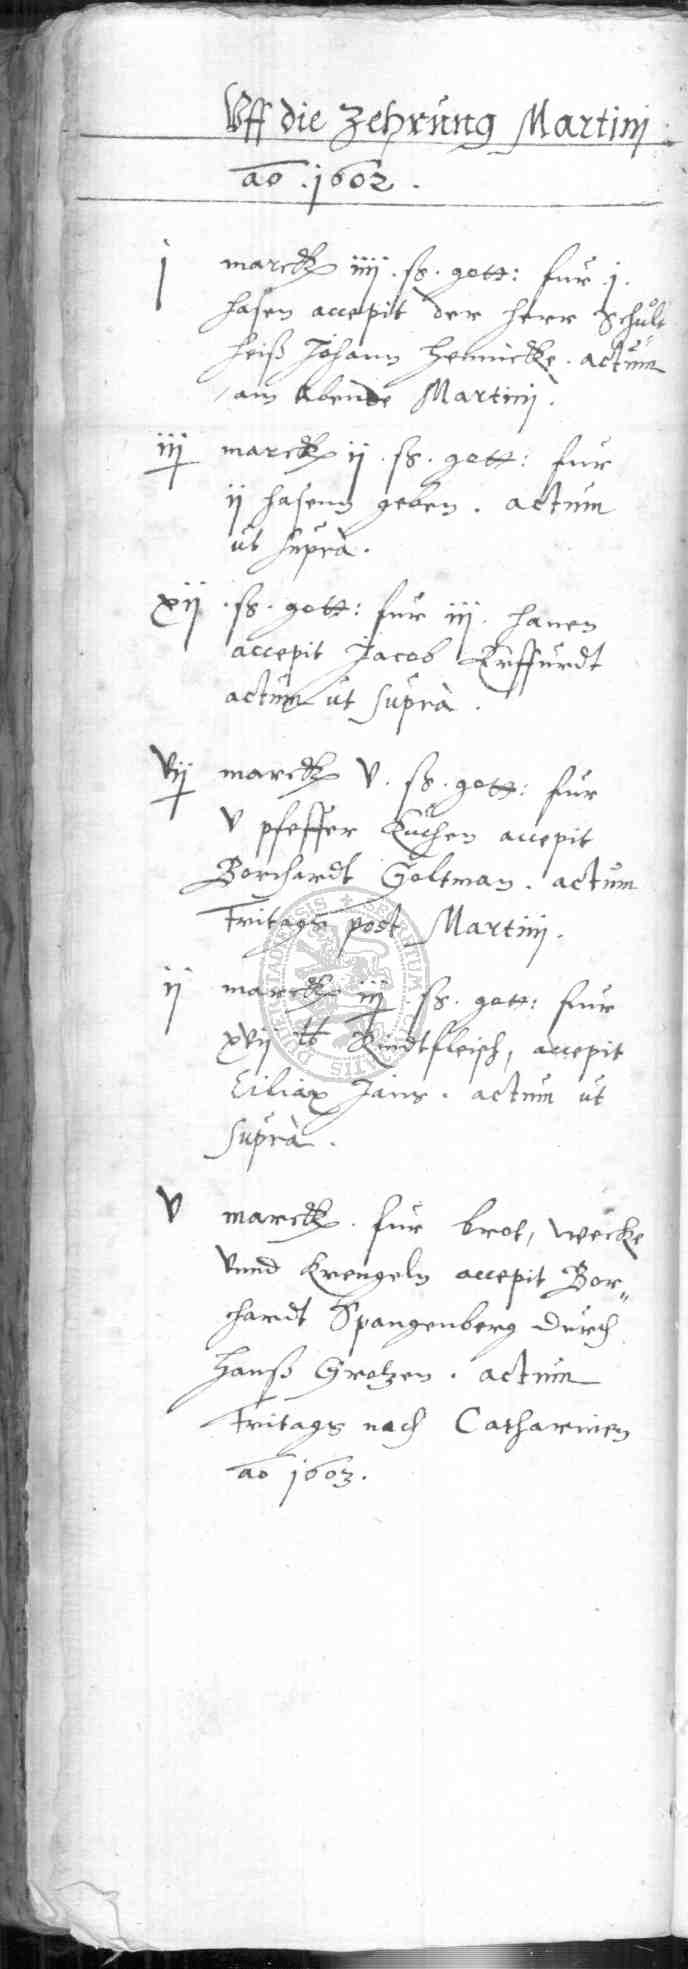 Vff die Zehrung Martinj
ao .1602.
j marck iiij . ß . gott: fur .j.
hasen accepit der herr Schult
heiß Johann Hennicke . actum
am Abende Martini.
iij marck ij . ß . gott: fur
ij hasenn geben . actum
ut suprà.
xij . ß . gott: fur iij . hanen
accepit Jacob Erffurdt
actum ut suprà .
vij marck v . ß . gott: fur
v pfeffer Kuchen accepit
Borchardt Goltman . actum
Fritags post Martinj.
ij marck iij ß . gott: fur
xvij lb Rindtfleisch, accepit
Ciliax . actum ut
suprà .
v marck . fur brot, wecke
vnnd krengeln accepit Bor„
chardt Spangenberg durch
Hanß Grotzen . actum
Fritags nach Catharinen
ao 1603.
SENATUM